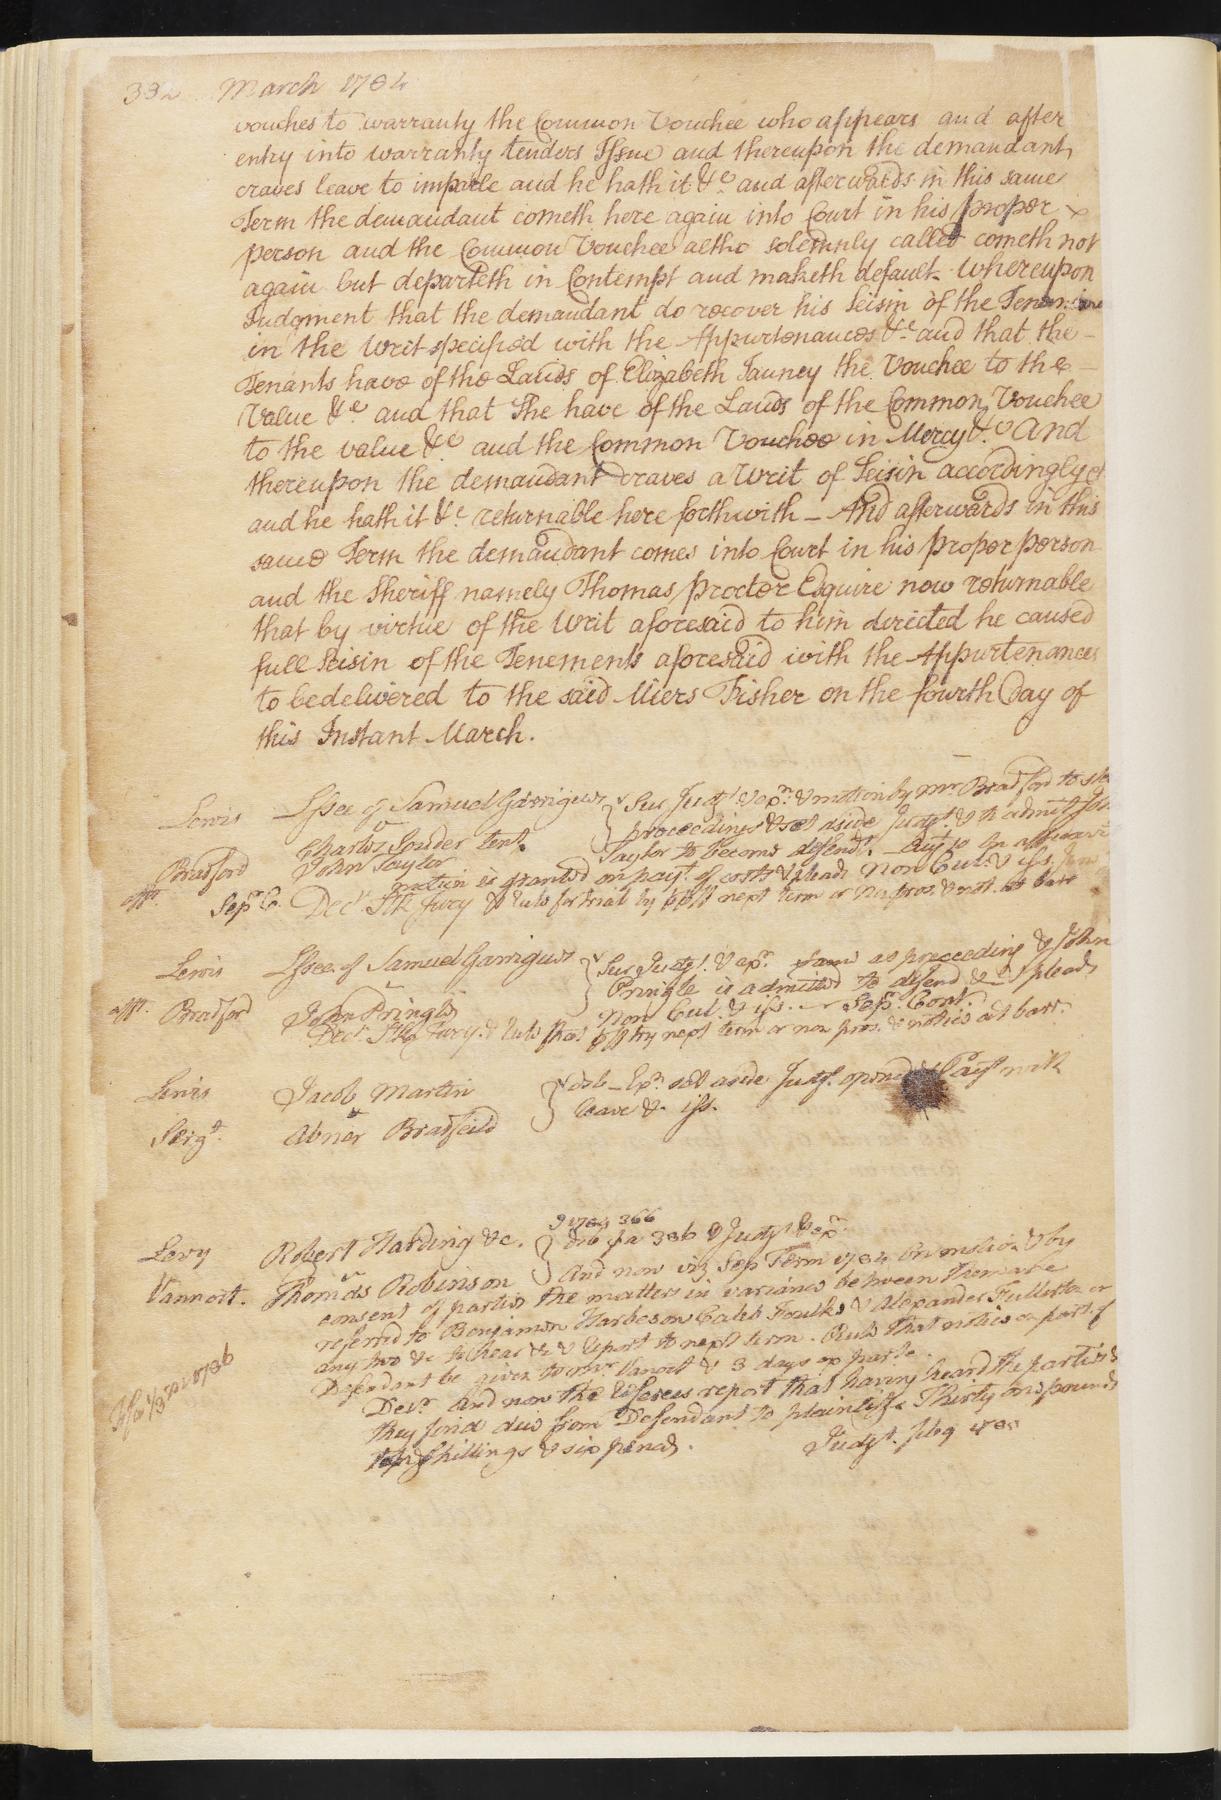 332 March 1784
vouches to warranty the Common Vouchee who appears and after
entry into warranty tenders Issue and thereupon the demandant
craves leave to imparle and he hath it &c. and afterwards in this same
Term the demandant cometh here again into Court in his proper
person and the Common Vouchee altho solemnly called cometh not
again but departeth in Contempt and maketh default Whereupon
Judgment that the demandant do recover his Seisin of the
in the Writ specified with the Appurtenances &c. and that the
Tenants have of the Lands of Elizabeth Jauney the Vouchee to the
Value &c. and that She have of the Lands of the Common Vouchee
to the value &c. and the Common Vouchee in Mercy &c. And
thereupon the demandant craves a Writ of Seisin accordingly
and he hath it &c. returnable here forthwith — And afterwards in this
same Term the demandant comes into Court in his proper person
and the Sheriff namely Thomas Procter Esquire now returnable
that by virtue of the Writ aforesaid to him directed he caused
full Seisin of the Tenements aforesaid with the Appurtenances
to be delivered to the said Miers Fisher on the fourth Day of
this Instant March.
Lewis Lssee of Samuel Garrigues Sur Judgt. & exn. & motion by Mr Bradford to
v proceedings & set aside Judgt. & to admit
Charles Souder tent. Taylor to become defendt.
Bradford John Taylor
motion is granted on payt. of costs & pleads Non Cul & iss.
Sepr. C. Decr. Stk Jury & Rule for trial by next term or Non pros. & not. at barr
Lewis Lssee. of Samuel Garrigues Sur Judgt. & exn. same as preceeding & John
v Pringle is admitted to defend & pleads
Bradford John Pringle Non Cul. & iss. Sepr. Cont.
Decr. Stk Jury. & Rule that try next term or non pros. & notice at barr.
Lewis Jacob Martin deb — Exn. set aside Judgt. opened & Payt with
v leave &. iss.
Sergt. Abner Bradfeild
9 1784 366
Levy Robert Harding &c. deb fa 336 & Judgt & exn
v And now viz Sep Term 1784 On motion & by
Vannost. Thomas Robinson
consent of parties the matters in variance between them are
referred to Benjamin Harbeson Caleb Foulke & Alexander Fullerton or
any two &c to hear &c & report to next term. Rule that notice on part of
Defendant be given to &. 3 days ex parte.
Decr. And now the Referees report that having heard the parties
they find due from Defendant to plaintiff Thirty one pounds
Shillings & six pence. Judgt.